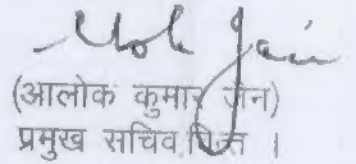 Alok Jain
(आलोक कुमार जैन)
प्रमुख सचिव वित्त ।